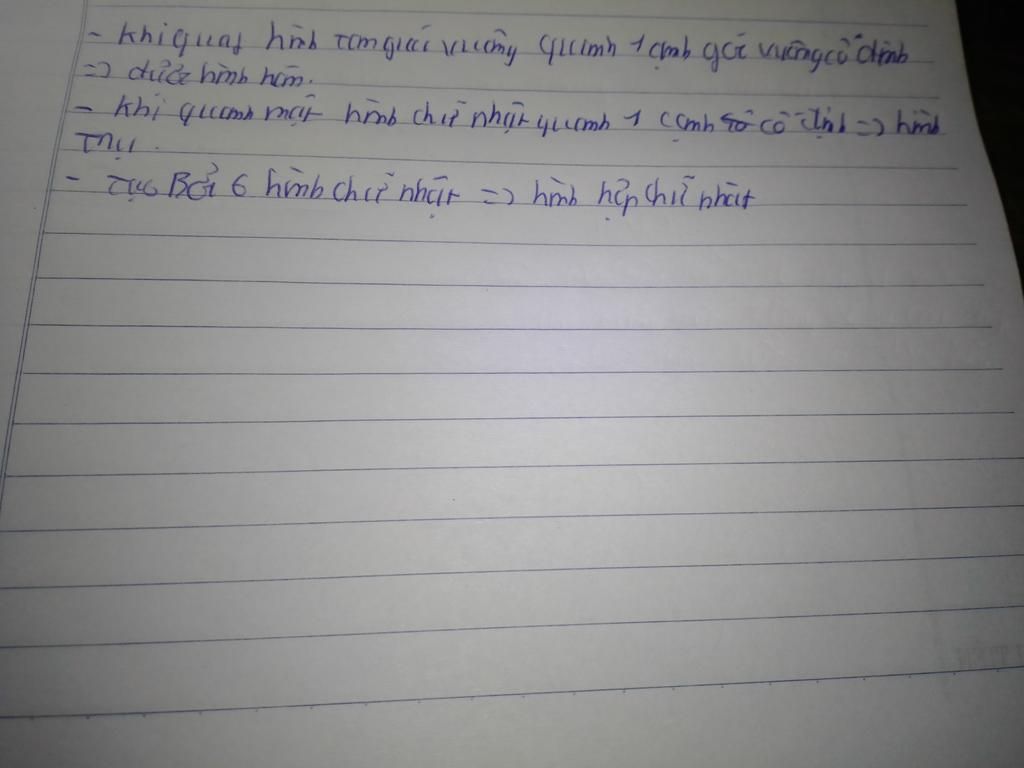 - Khi quay hình tam giác vuông quanh 1 cạnh góc vuông cố định
=> được hình nón.
- Khi quanh một hình chữ nhật quanh 1 cạnh cố định => hình
Trụ.
- Tạo Bởi 6 hình chữ nhật => hình hộp chữ nhật